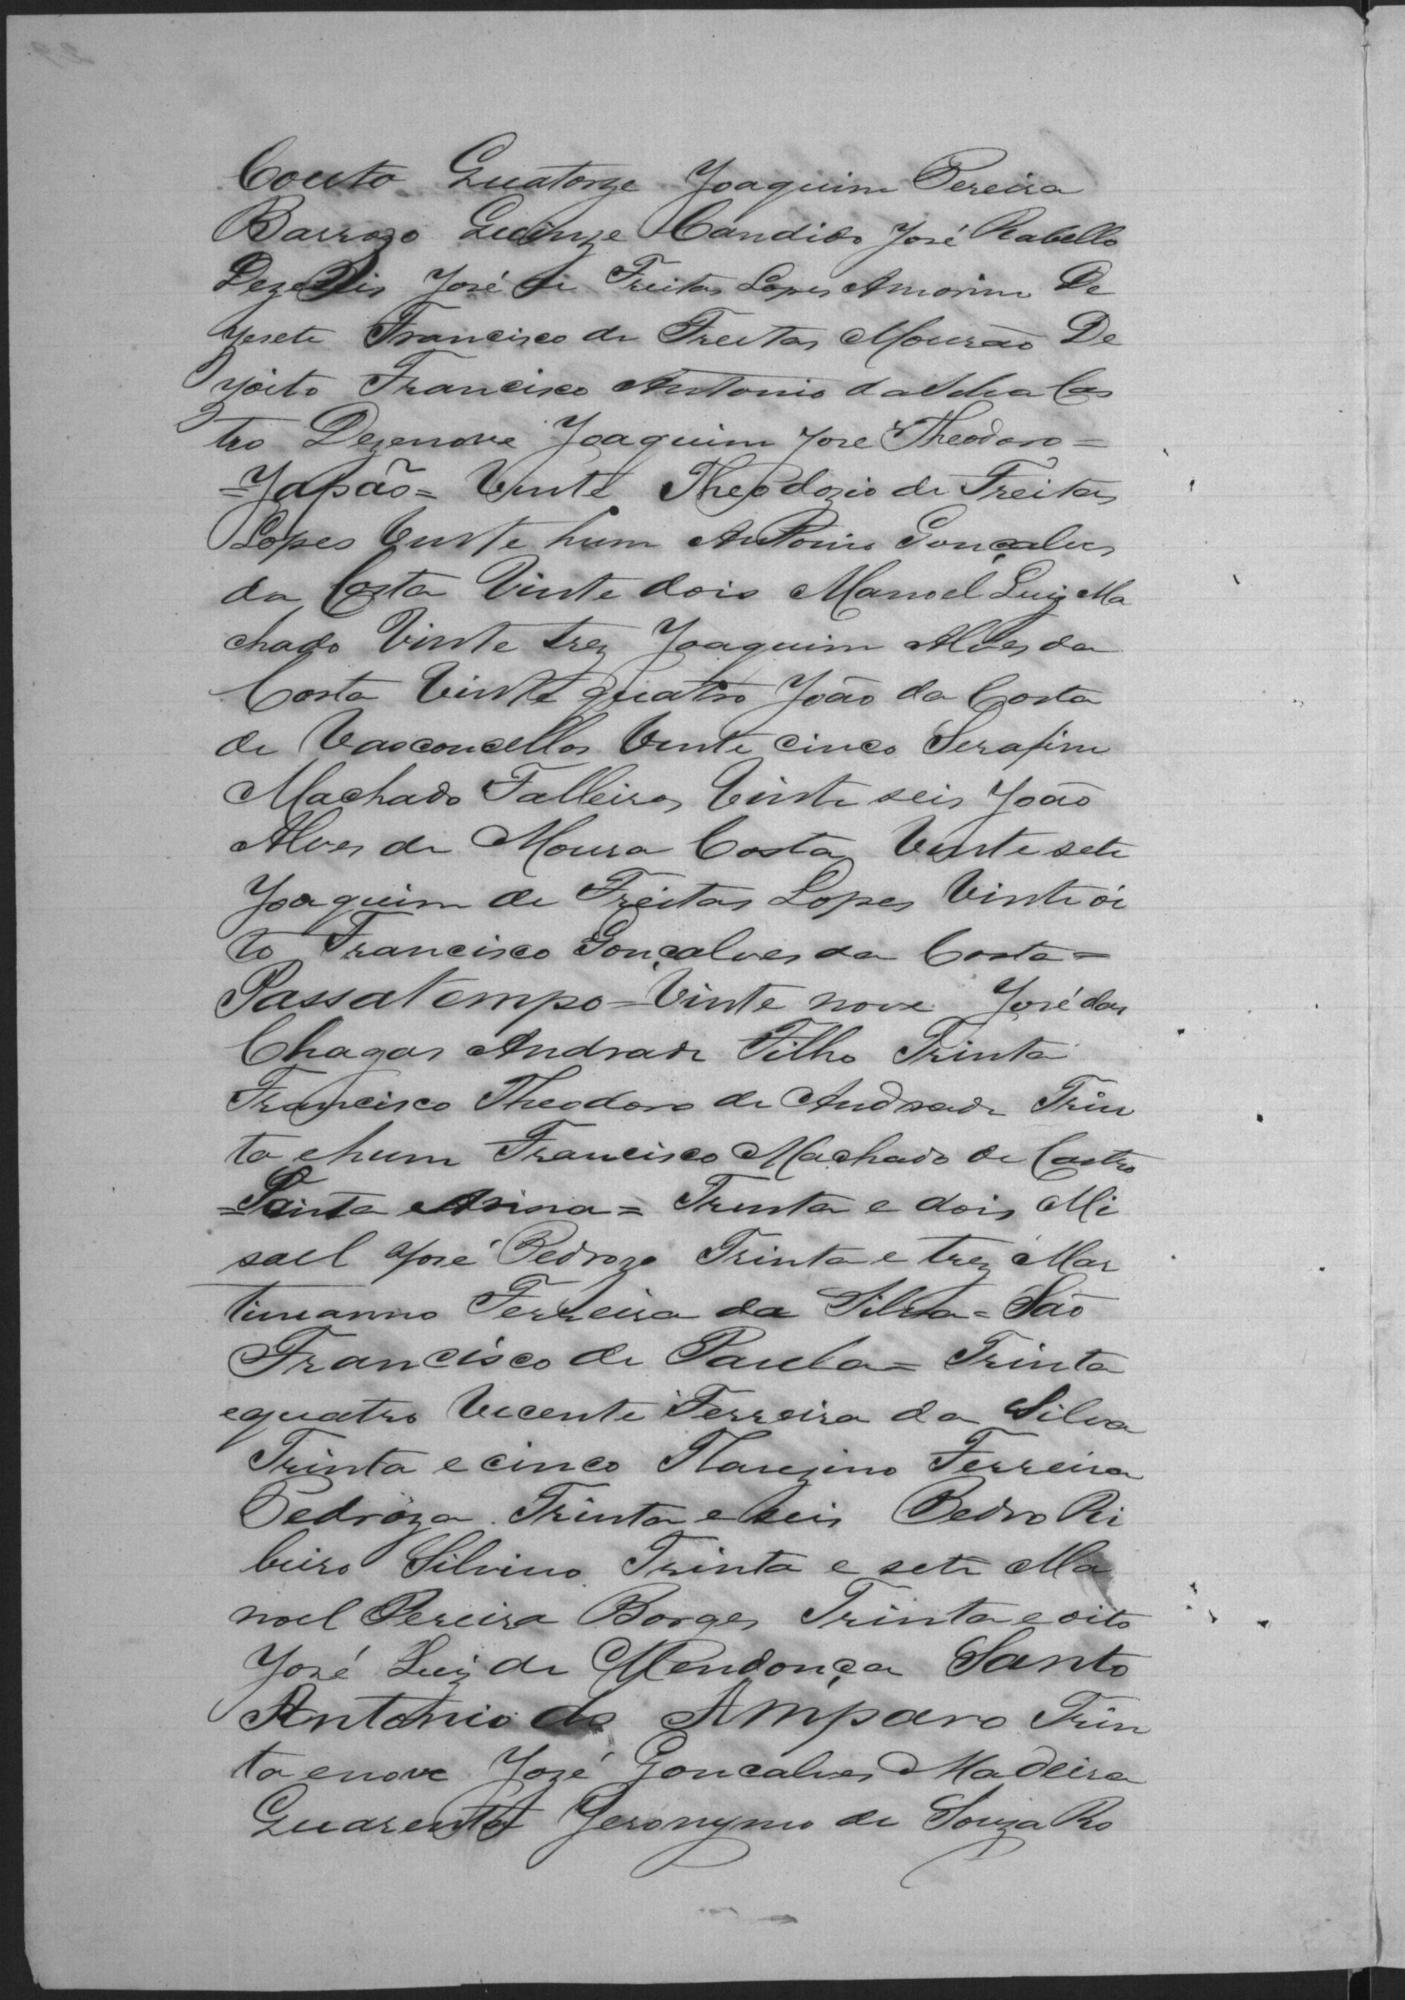 Couto Quatorze Joaquim Pereira
Barrozo Quinze Candido José Rabello
Dezeseis José de Freitas Lopes Amorim De
zesete Francisco de Freitas Mourão De
zoito Francisco Antonio da Silva Cas
tro Dezenove Joaquim José Theodoro =
= Japão = Vinte Theodozio de Freitas
Lopes Vinte hum Antonio Gonçalves
da Costa Vinte dois Manoel Luiz Ma
chado Vinte trez Joaquim Alves da
Costa Vinte quatro João da Costa
de Vasconcellos Vinte cinco Serafim
Machado Falleiros Vinte seis João
Alves de Moura Costa Vinte sete
Joaquim de Freitas Lopes Vinte oi
to Francisco Gonçalves da Costa =
Passatempo = Vinte nove José das
Chagas Andrade Filho Trinta
Francisco Theodoro de Andrade Trin
ta e hum Francisco Machado de Castro
= Santa Anna = Trinta e dois Mi
sael José Pedrozo Trinta e trez Mar
timianno Ferreira da Silva = São
Francisco de Paula = Trinta
e quatro Vicente Ferreira da Silva
Trinta e cinco Ferreira
Pedroza Trinta e seis Pedro Ri
beiro Silvino Trinta e sete Ma
noel Pereira Borges Trinta e oito
José Luiz de Mendonça Santo
Antonio do Amparo Trin
ta e nove José Goncalves Madeira
Quarenta Jeronymo de Souza Ro